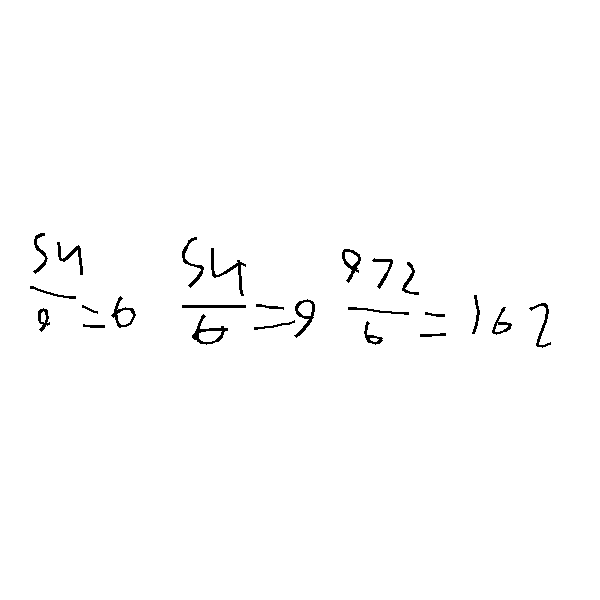 54/9=6 54/6=9 972/6=162